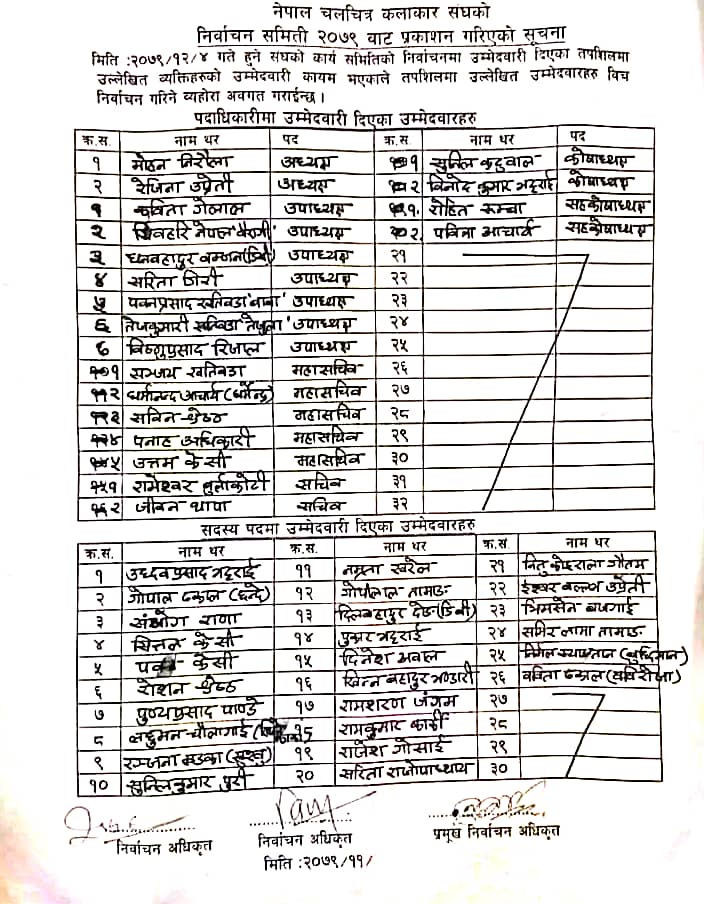 नेपाल चलचित्र कलाकार संघको
निर्वाचन समिती २०७९ बाट प्रकाशन गरिएको सूचना
मिति :२०७९/१२/४ गते हुने संघको कार्य समितिको निर्वाचनमा उम्मेदवारी दिएका तपशिलमा
उल्लेखित व्यक्तिहरुको उम्मेदवारी कायम भएकाले तपशिलमा उल्लेखित उम्मेदवारहरु विच
निर्वाचन गरिने व्यहोरा अवगत गराईन्छ ।
पदाधिकारीमा उम्मेदवारी दिएका उम्मेदवारहरु
क्र.स. नाम थर पद क्र.स. नाम थर पद
१ मोहन निरौला अध्यक्ष १ सुनिल कटुवाल कोषाध्यक्ष
२ रेजिना उप्रेती अध्यक्ष २ विनोद कुमार भट्टराई कोषाध्यक्ष
१ कविता गेलाल उपाध्यक्ष १ रोहित रुम्बा सहकोषाध्यक्ष
२ शिवहरि नेपाल उपाध्यक्ष २ पवित्रा आचार्य सहकोषाध्यक्ष
३ धनबहादुर उपाध्यक्ष २१
४ सरिता गिरी उपाध्यक्ष २२
५ पवनप्रसाद खतिवडा 'बाबा' उपाध्यक्ष २३
६ तेजकुमारी उपाध्यक्ष २४
६ विष्णुप्रसाद रिजाल उपाध्यक्ष २५
१ सञ्जय खतिवडा महासचिव २६
२ धर्मानन्द आचार्य (धर्मेन्द्र) महासचिव २७
३ सविन श्रेष्ठ महासचिव २८
४ पनाह अधिकारी महासचिव २९
५ उत्तम केसी महासचिव ३०
१ रामेश्वर सचिव ३१
२ जीवन थापा सचिव ३२
सदस्य पदमा उम्मेदवारी दिएका उम्मेदवारहरु
क्र.स. नाम थर क्र.स. नाम थर क्र.स. नाम थर
१ उद्धवप्रसाद भट्टराई ११ नम्रता खरेल २१ नितु कोइराला गौतम
२ गोपाल ढकाल (छन्दे) १२ गोपीलाल तामाङ २२ ईश्वर बल्लभ उप्रेती
३ राणा १३ दिलबहादुर २३ भिमसेन बजगाई
४ शित्तल केसी १४ भट्टराई २४ समिर लामा तामाङ
५ केसी १५ दिनेश अवाल २५ निर्मल (बुद्धिमान)
६ रोशन श्रेष्ठ १६ बहादुर भण्डारी २६ बविता ढकाल
७ पुण्यप्रसाद पाण्डे १७ रामशरण जंगम २७
८ लक्षुमन चौलागाई रामकुमार कार्की २८
९ रञ्जना खड्का १९ राजेश गोसाई २९
१० सुनिलकुमार पुरी २० सरिता राजोपाध्याय ३०
निर्वाचन अधिकृत निर्वाचन अधिकृत प्रमुख निर्वाचन अधिकृत
मिति :२०७९/११/